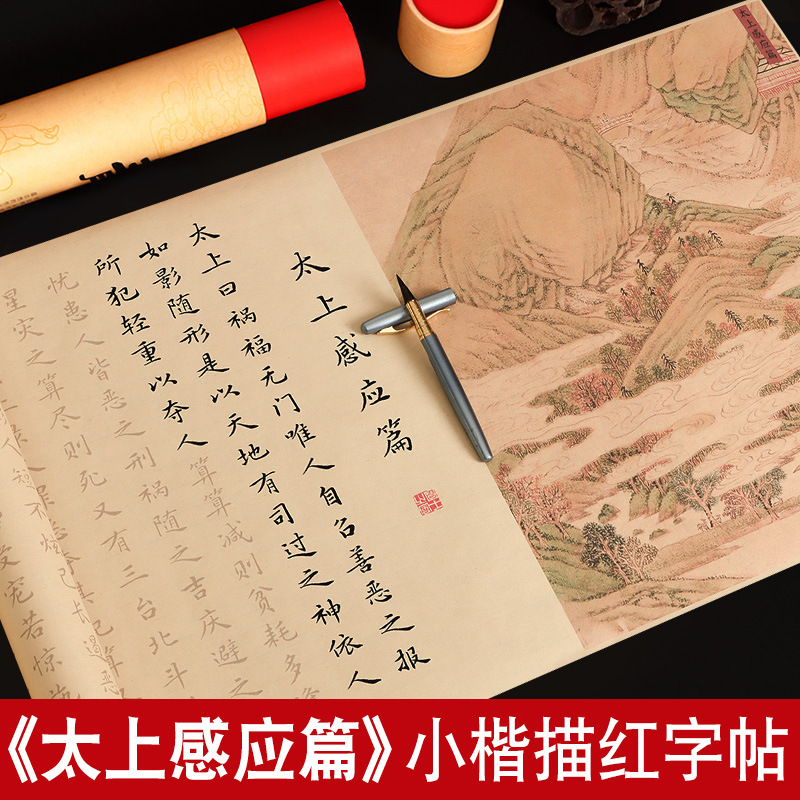 太上感应篇
太上感应篇
太上曰祸福无门唯人自召善恶之报
如影随形是以天地有司过之神依人
所犯轻重以夺人算算减则贫耗多逢
忧患人皆恶之刑祸随之吉庆避之
星灾之算尽则死又有三台北斗
宠若惊施
《太上感应篇》小楷描红字帖